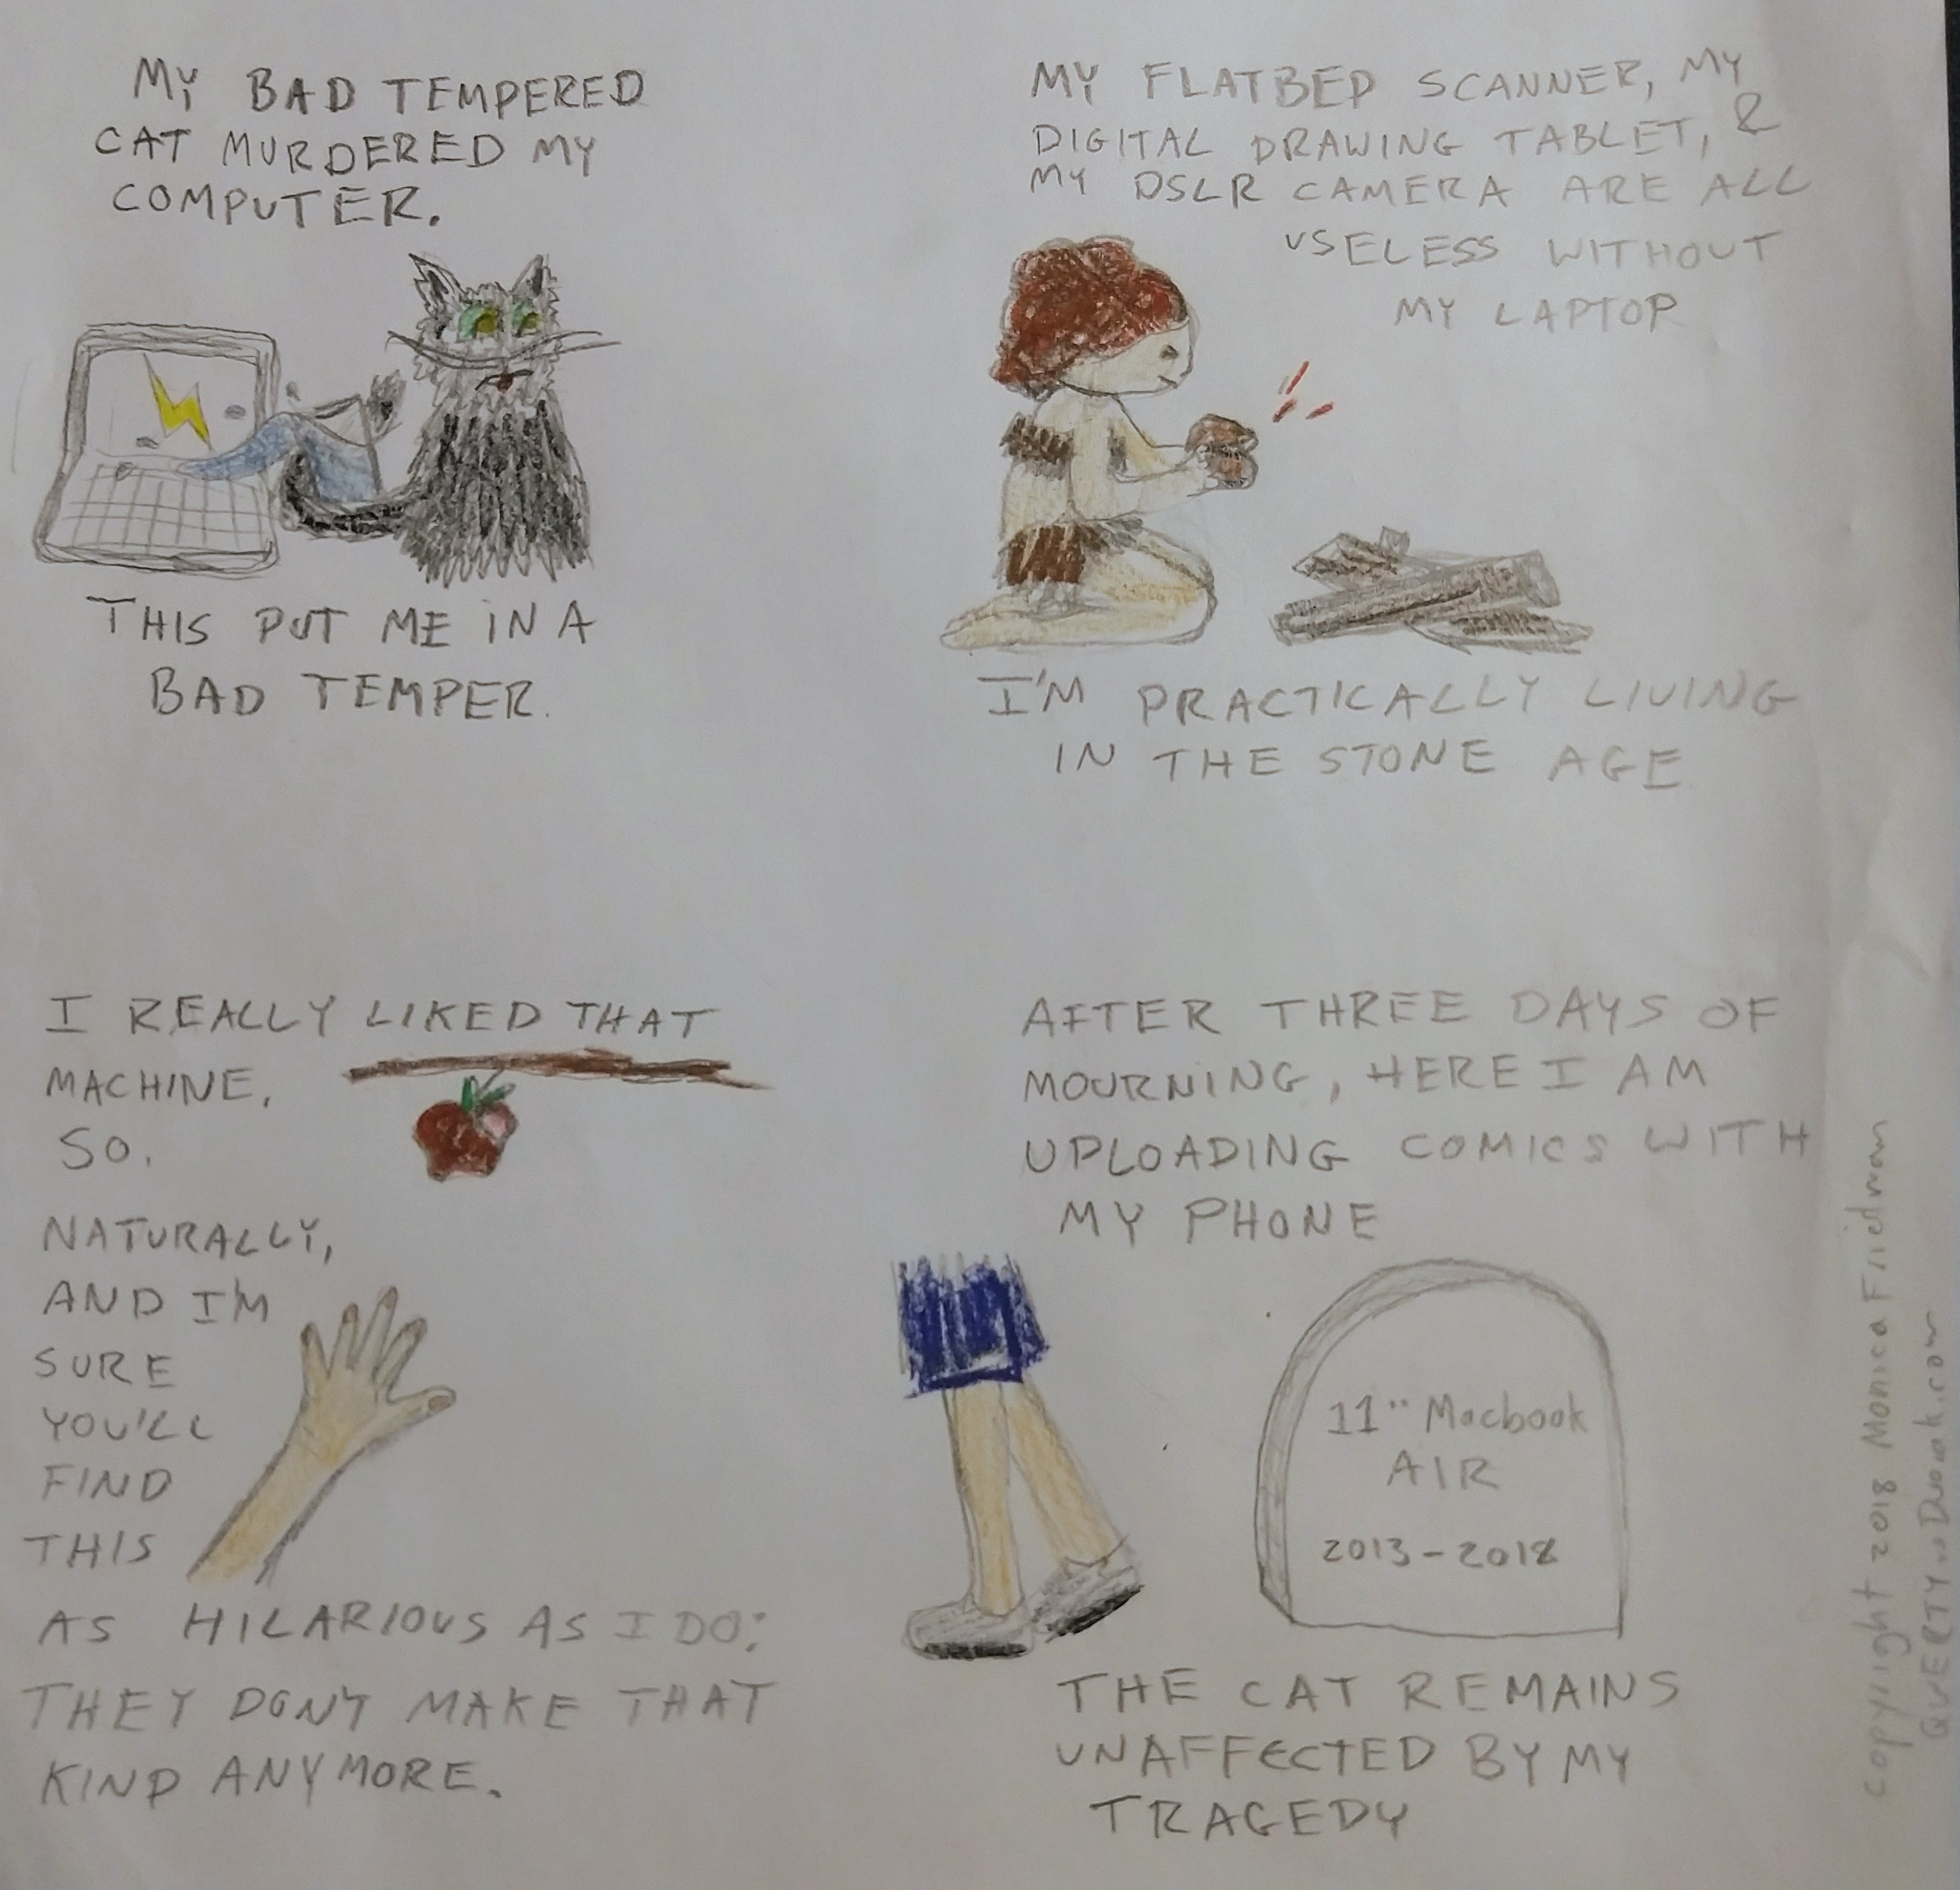 MY BAD TEMPERED
CAT MURDERED MY
COMPUTER.
THIS PUT ME IN A
BAD TEMPER.
MY FLATBED SCANNER, MY
DIGITAL DRAWING TABLET, &
MY DSLR CAMERA ARE ALL
USELESS WITHOUT
MY LAPTOP
I'M PRACTICALLY LIVING
IN THE STONE AGE
I REALLY LIKED THAT
MACHINE.
SO.
NATURALLY,
AND I'M
SURE
YOU'LL
FIND
THIS
AS HILARIOUS AS I DO:
THEY DON'T MAKE THAT
KIND ANYMORE.
AFTER THREE DAYS OF
MOURNING, HERE I AM
UPLOADING COMICS WITH
MY PHONE
11" Macbook
AIR
2013-2018
THE CAT REMAINS
UNAFFECTED BY MY
TRAGEDY
copyright 2018 Monica Friedman